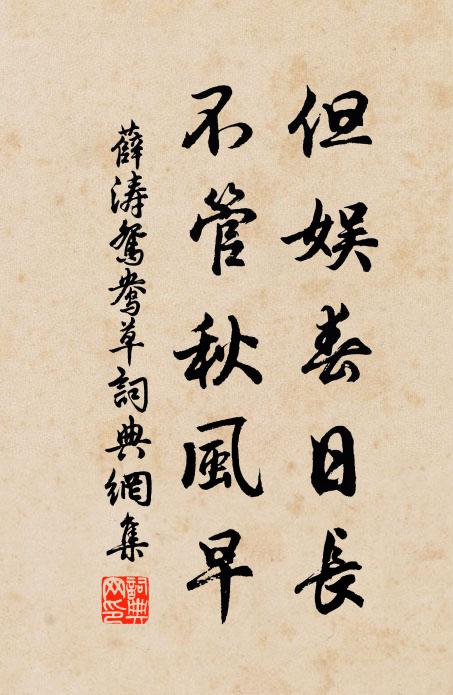 但娱春日長
不管秋風早
薛濤鴛鴦草詞典網集
詞典